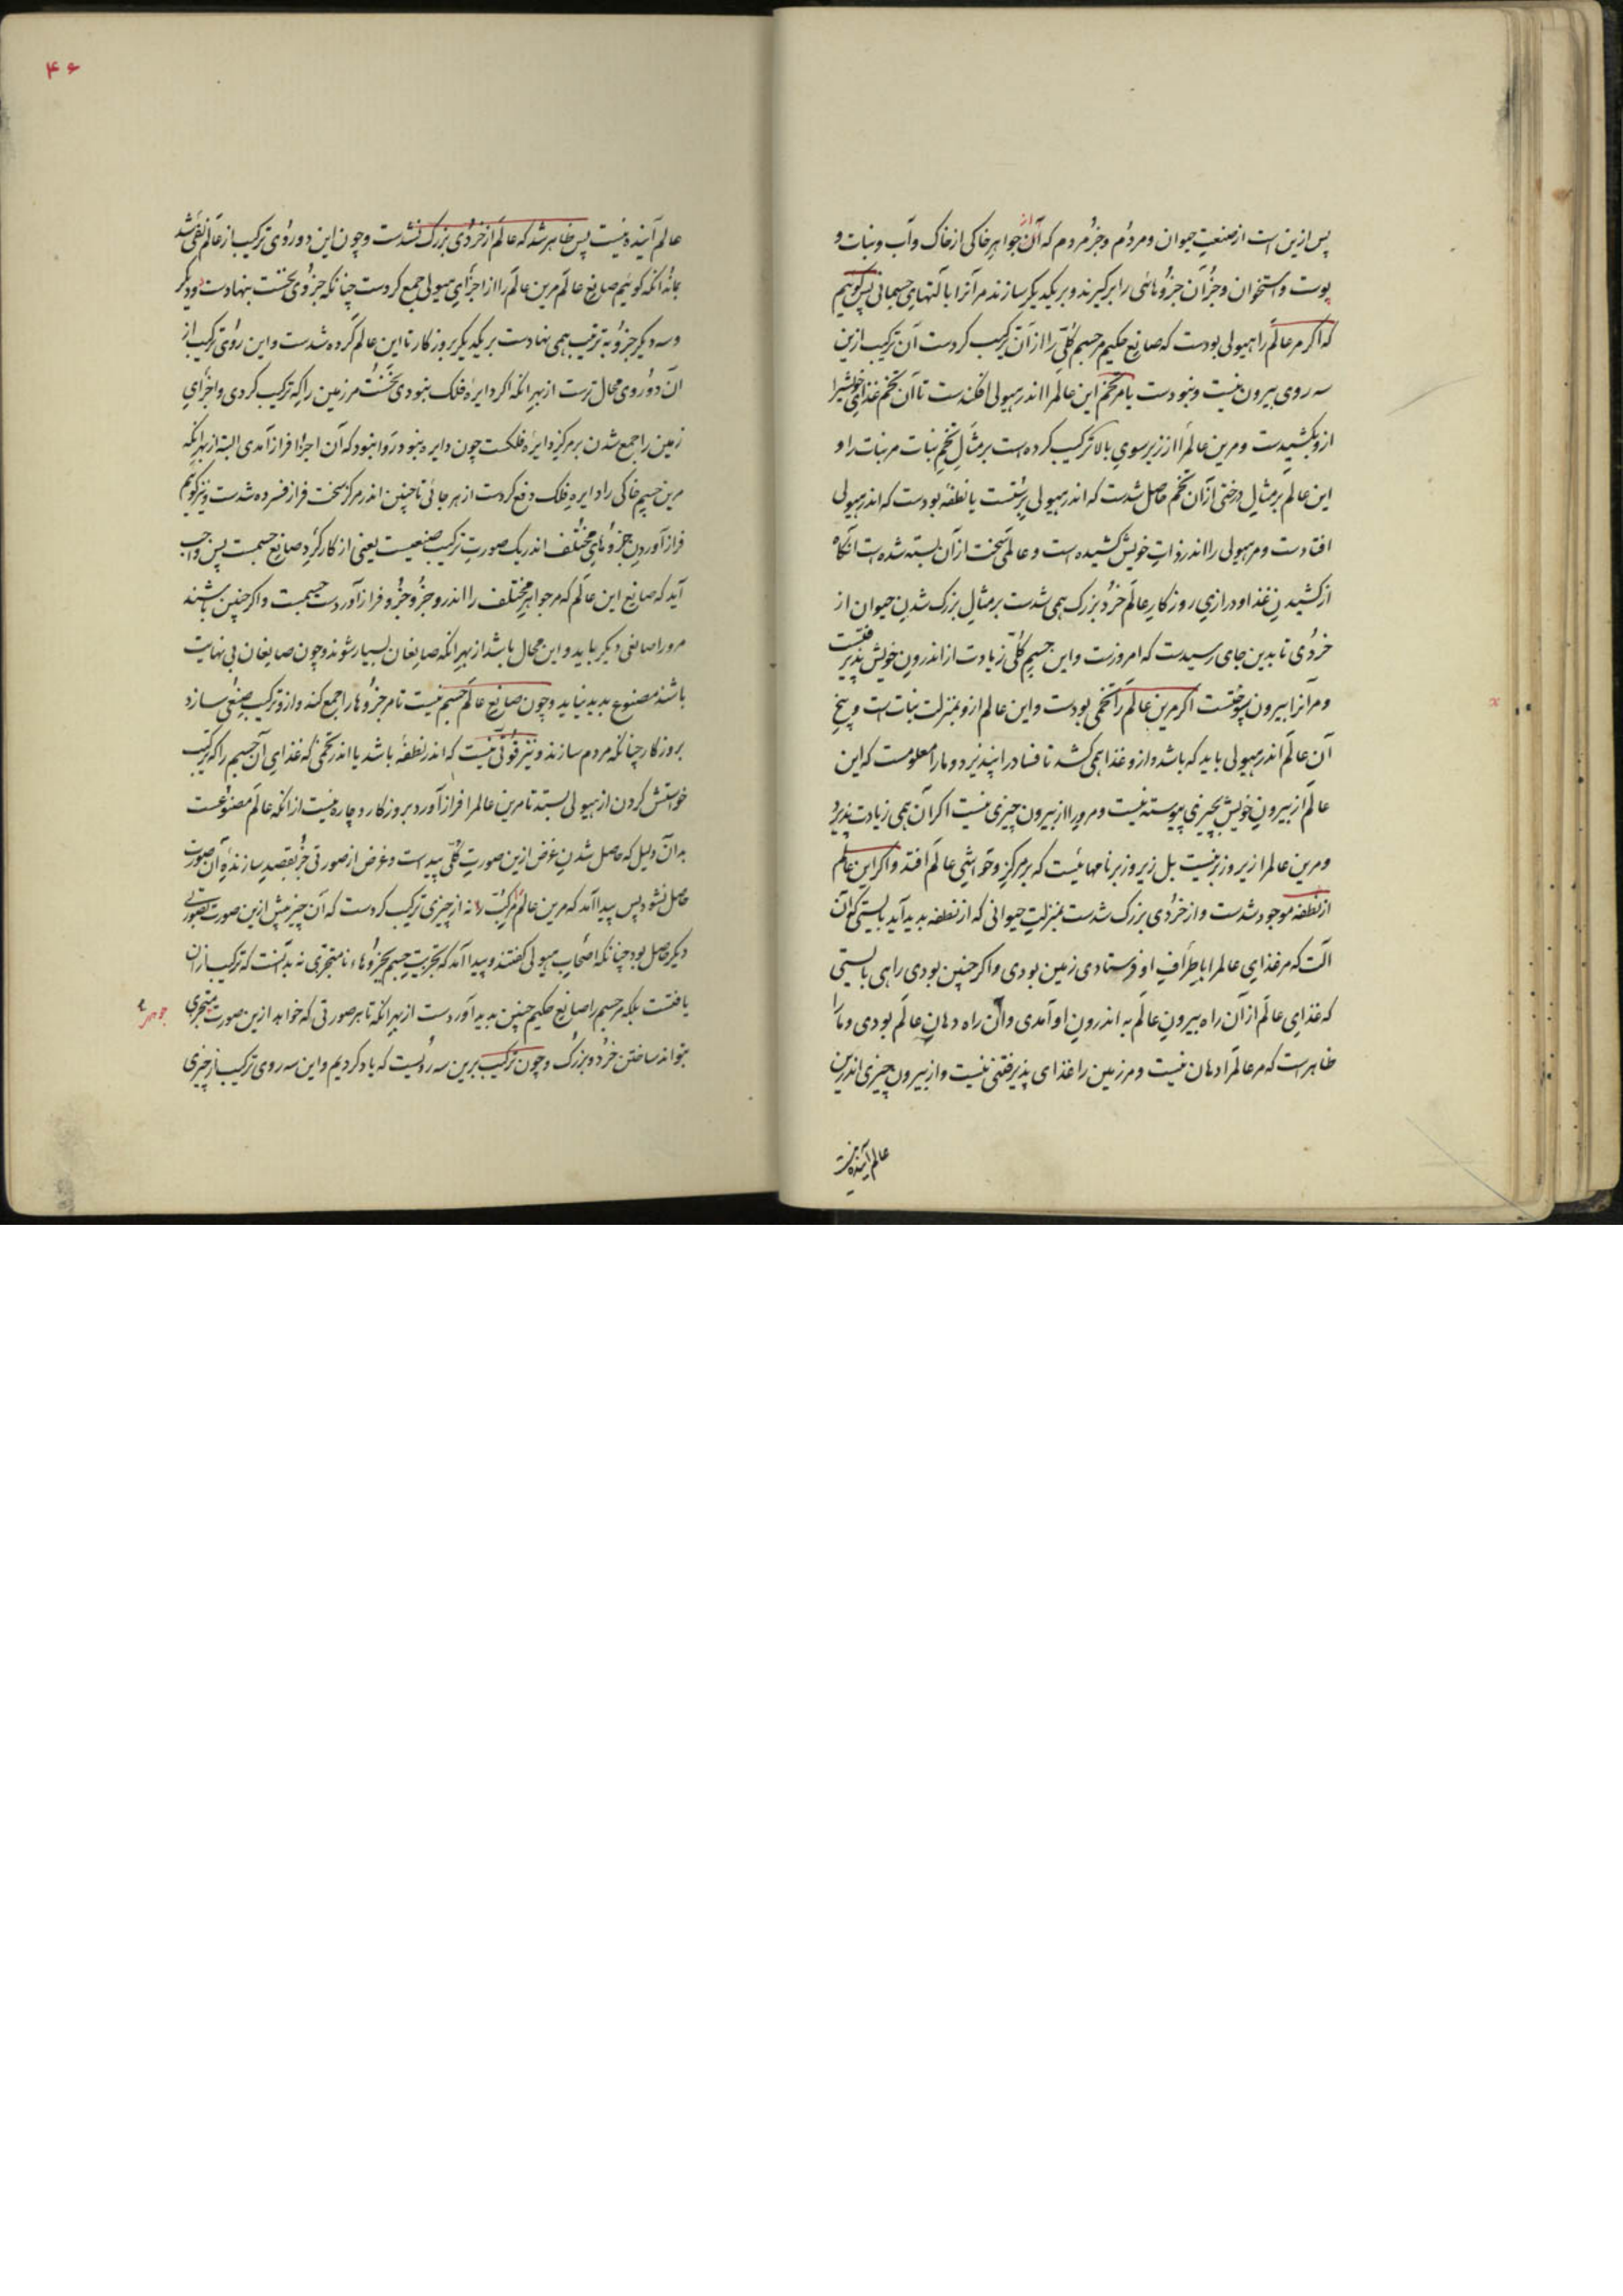 پس ازین است از صنعت حیوان و مردم و جز مردم که آن از جواهر خاکی از خاک و آب و نبات و
پوست و استخوان و جز آن جزوهائی را برگیرند و بر یکدیگر سازند مر آنرا بآلتهای جسمانی پس گوئیم
که اگر مر عالم را هیولی بودست که صانع حکیم مر جسم کلی را از آن ترکیب کردست آن ترکیب ازین
سه روی بیرون نیست و نبودست یا مر تخم این عالم را اندر هیولی افکندست تا آن تخم غذای خویش را
ازو بکشیدست و مرین عالم را از زیر سوی بالا ترکیب کرده است بر مثال تخم نبات مر نبات را و
این عالم بر مثال درختی از آن تخم حاصل شدست که اندر هیولی برُستست یا نطفه بودست که اندر هیولی
افتادست و مر هیولی را اندر ذات خویش کشیده است و عالمی سخت از آن بسته شده است آنگاه
از کشیدن غذا و درازی روزگار عالم خرد بزرگ همی شدست بر مثال بزرگ شدن حیوان از
خردی تا بدین جای رسیدست که امروزست و این جسم کلی زیادت از اندرون خویش پذیرفتست
و مر آنرا بیرون پوختست اگر مرین عالم را تخمی بودست و این عالم ازو بمنزلت نبات است و بیخ
آن عالم اندر هیولی باید که باشد و ازو غذا همی کشد تا فساد را نپذیرد و ما را معلومست که این
عالم از بیرون خویش بچیزی پیوسته نیست و مرو را از بیرون چیزی نیست اگر آن همی زیادت پذیرد
و مرین عالم را زیر و زبر نیست بل زیر و زبر نامهائیست که بر مرکز و حواشی عالم افتد و اگر این عالم
از نطفه موجود شدست و از خردی بزرگ شدست بمنزلت حیوانی که از نطفه پدید آید بایستی که آن
آلت که مر غذای عالم را باطراف او فرستادی زمین بودی و اگر چنین بودی راهی بایستی
که غذای عالم از آن راه بیرون عالم به اندرون او آمدی و آن راه دهان عالم بودی و ما را
ظاهر است که مر عالم را دهان نیست و مر زمین را غذای پذیرفتنی نیست و از بیرون چیزی اندرین
عالم آینده نیست
۴۶
عالم آینده نیست پس ظاهر شد که عالم از خردی بزرگ نشدست و چون این دو روی ترکیب از عالم نفی شد
بماند آنکه گوئیم صانع عالم مرین عالم را از اجزای هیولی جمع کردست چنانکه جزوی نخست بنهادست و دیگر
و سه دیگر جزو به ترتیب همی نهادست بر یکدیگر بروزگار تا این عالم کرده شدست و این روی ترکیب از
آن دو روی محال ترست از بهر آنکه اگر دایره فلک نبودی نخست مر زمین را که ترکیب کردی و اجزای
زمین را جمع شدن بر مرکز دایره فلکست چون دایره نبود روا نبود که آن اجزا فراز آمدی البته از بهر آنکه
مرین جسم خاکی را دایره فلک دفع کردست از هر جائی تا چنین اندر مرکز سخت فراز فسرده شدست و نیز گوئیم
فراز آوردن جزوهای مختلف اندر یک صورت ترکیب صنعیست یعنی از کارکرد صانع جسمست پس واجب
آید که صانع این عالم که مر جواهر مختلف را اندرو جزو جزو فراز آوردست جسمست و اگر چنین باشد
مرو را صانعی دیگر باید و این محال باشد از بهر آنکه صانعان بسیار شوند و چون صانعان بی نهایت
باشند مصنوع پدید نیاید و چون صانع عالم جسم نیست تا مر جزوها را جمع کند و ازو ترکیب صنعی سازد
بروزگار چنانکه مردم سازند و نیز قوتی نیست که اندر نطفه باشد یا اندر تخمی که غذای آن جسم را که ترکیب
خواستش کردن از هیولی بستد تا مرین عالم را فراز آورد بروزگار و چاره نیست از آنکه عالم مصنوعست
بدان دلیل که حاصل شدن غرض ازین صورت کلی پیداست و غرض از صورتی جز بقصد سازنده آن صورت
حاصل نشود پس پیدا آمد که مرین عالم مرکب را نه از چیزی ترکیب کردست که آن چیز پیش ازین صورت بصورتی
دیگر حاصل بود چنانکه اصحاب هیولی گفتند و پیدا آمد که تجربت جسم بجزوهاء نامتجزی نه بدآنست که ترکیب از آن
یافتست بلکه مر جسم را صانع حکیم چنین پدید آوردست از بهر آنکه تا بهر صورتی که خواهد ازین صورت متجزی
جوهر
بتواند ساختن خرد و بزرگ و چون ترکیب برین سه رویست که یاد کردیم و این سه روی ترکیب از چیزی